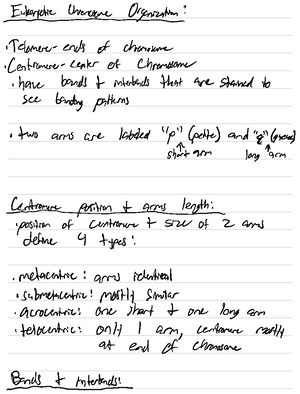 Eukaryotic Chromosome Organization:
• Telomere - ends of chromosome
• Centromere - center of chromosome
• have bands + interbands that are stained to
see banding patterns
• two arms are labeled "p" (petite) and "q" (queue)
short arm long arm
Centromere position + arms length:
• position of centromere + size of 2 arms
define 4 types:
• metacentric: arms identical
• submetacentric: mostly similar
• acrocentric: one short + one long arm
• telocentric: only 1 arm, centromere mostly
at end of chromosome
Bands + interbands: